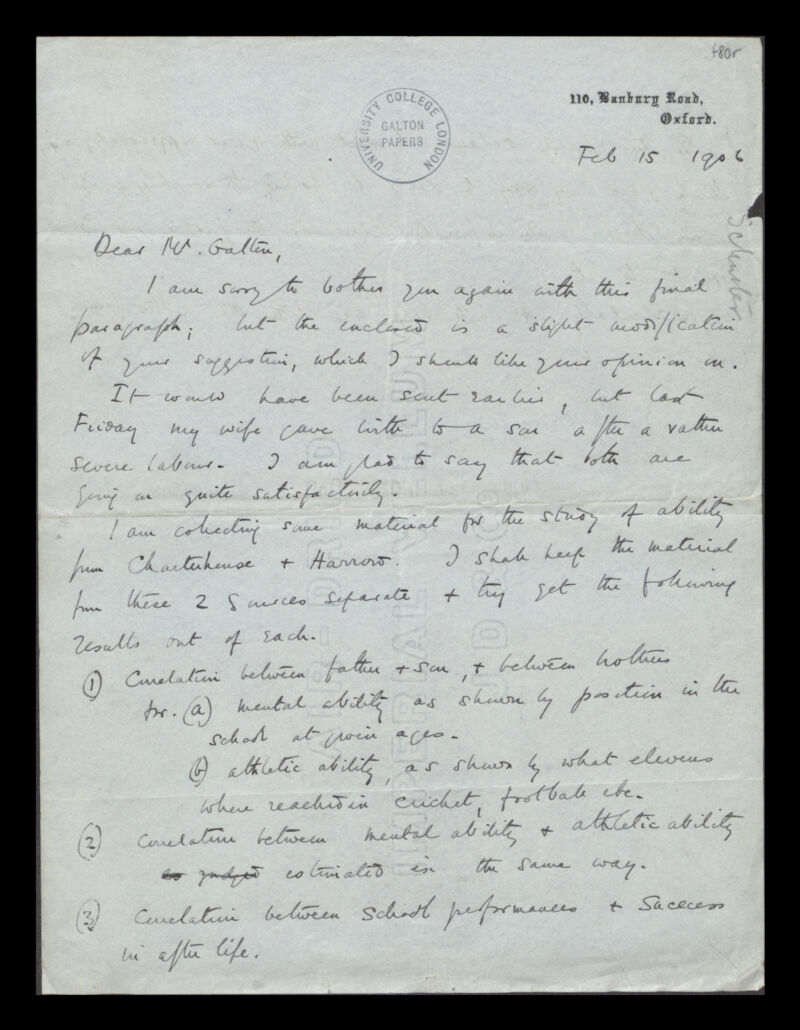 480r
110, Banbury Road,
Oxford.
UNIVERSITY COLLEGE LONDON
GALTON
PAPERS
Feb 15 1906
Schuster
Dear Mr. Galton,
I am sorry to bother you again with this final
paragraph; but the enclosed is a slight modification
of your suggestion, which I should like your opinion on.
It would have been sent earlier, but last
Friday my wife gave birth to a son after a rather
severe labour. I am glad to say that both are
going on quite satisfactorily.
I am collecting some material for the study of ability
from Charterhouse + Harrow. I shall keep the material
from these 2 sources separate + try get the following
results out of each.
(1) Correlation between father + son, + between brothers
for. (a) mental ability as shown by position in the
school at given ages.
(b) athletic ability, as shown by what elevens
where reached in cricket, football etc.
(2) Correlation between mental ability + athletic ability
as judged estimated in the same way.
(3) Correlation between school performances + success
in after life.